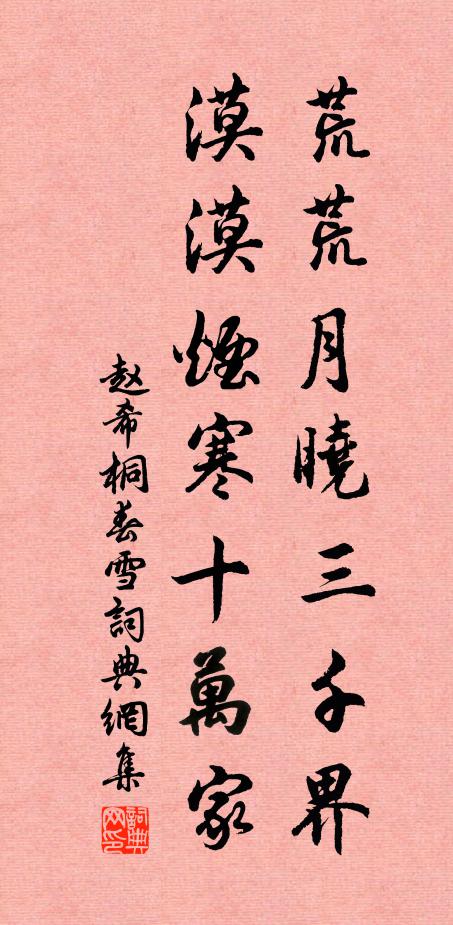 荒荒月曉三千界
漠漠煙寒十萬家
趙希桐春雪詞典網集
詞典网印